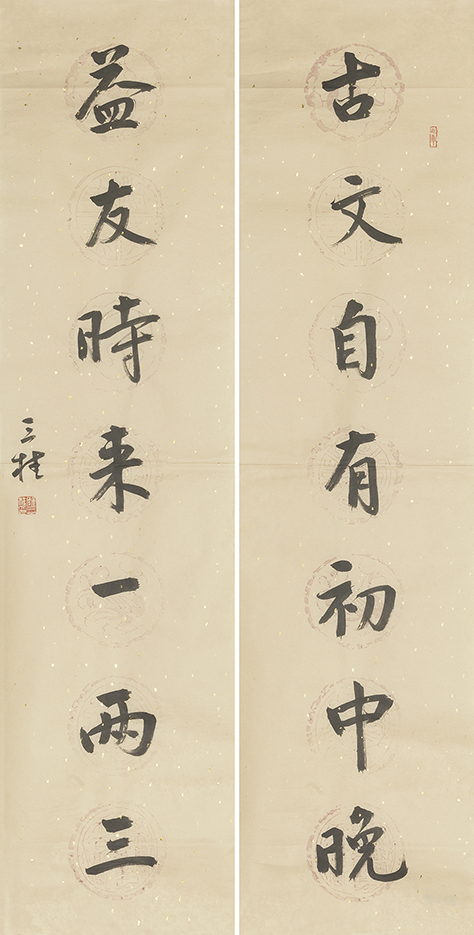 古文自有初中晚
益友時来一两三
三桂